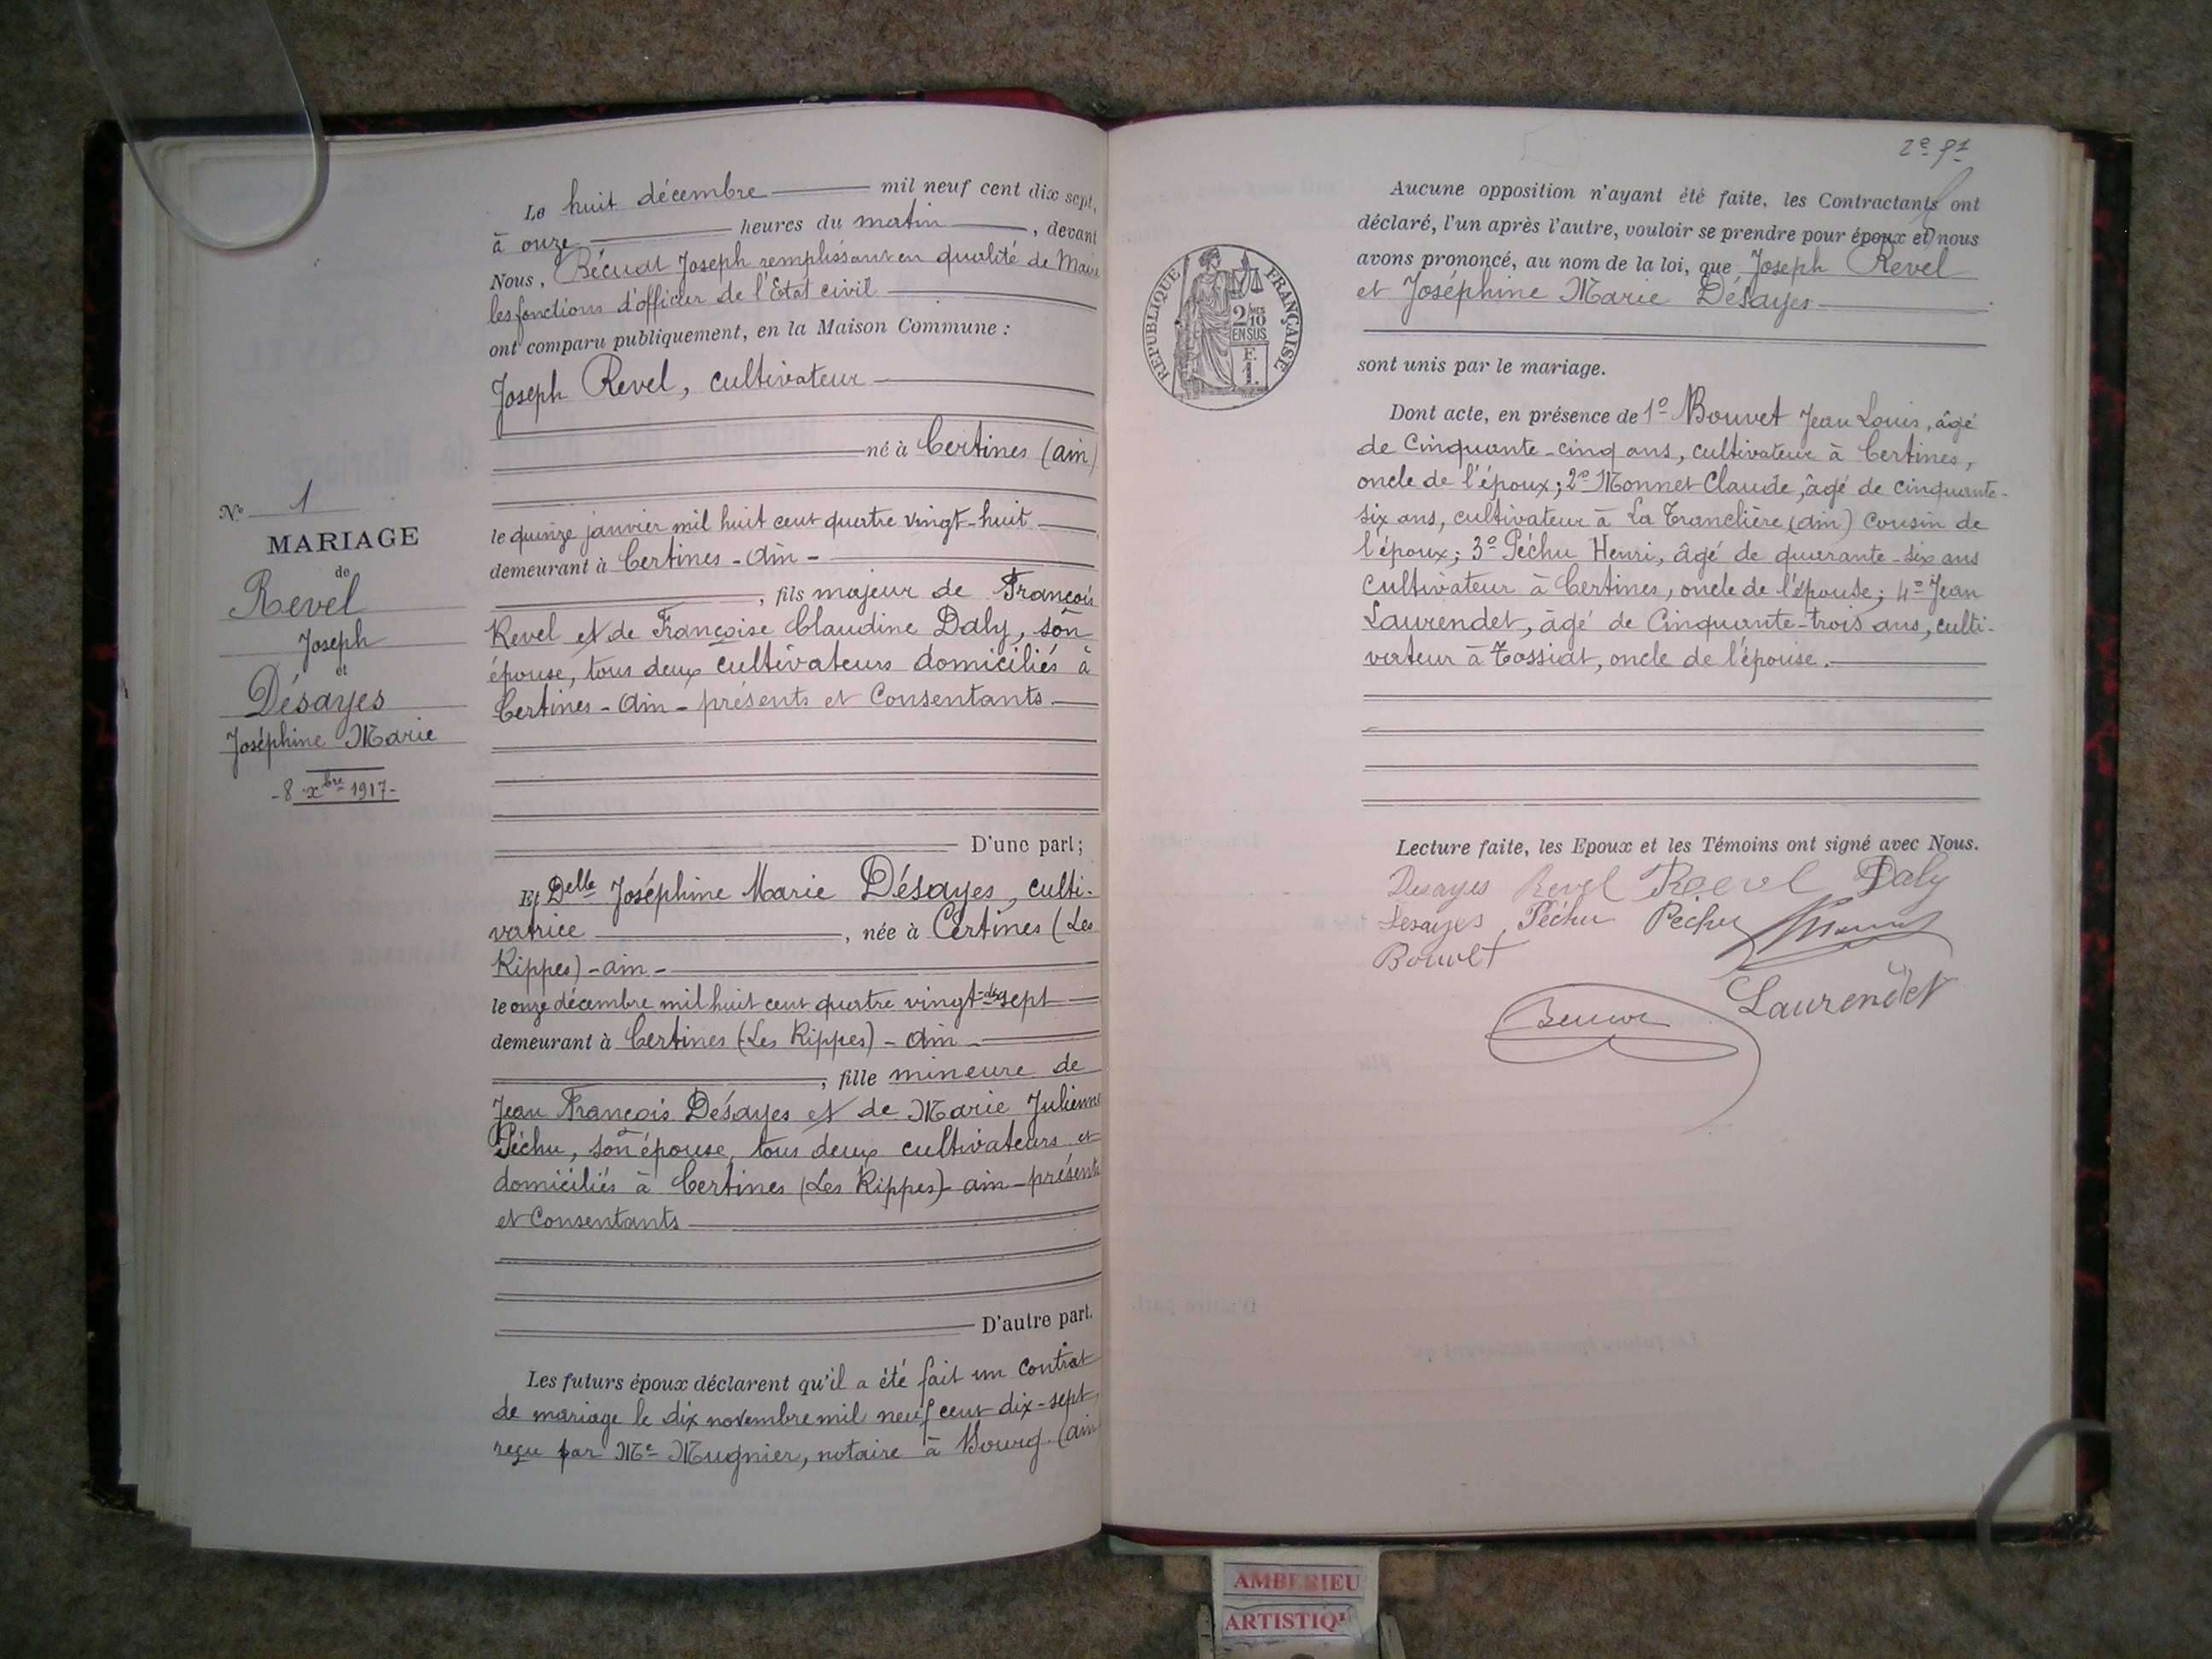 N° 1
MARIAGE
de
Revel
Joseph
et
Désayes
Joséphine Marie
- 8 xbre 1917 -
Le huit décembre mil neuf cent dix sept,
à onze heures du matin, devant
Nous, Bécuat Joseph remplissant en qualité de Maire
les fonctions d'officier de l'Etat civil
ont comparu publiquement, en la Maison Commune :
Joseph Revel, cultivateur
né à Certines (ain)
le quinze janvier mil huit cent quatre vingt-huit
demeurant à Certines - Ain -
, fils majeur de François
Revel et de Françoise Claudine Daly, son
épouse, tous deux cultivateurs domiciliés à
Certines - Ain - présents et Consentants
D'une part;
Et Delle Joséphine Marie Désayes, culti-
vatrice, née à Certines (Les
Rippes) - ain -
le onze décembre mil huit cent quatre vingt-dix sept
demeurant à Certines (Les Rippes) - Ain
, fille mineure de
Jean François Désayes et de Marie Julienne
Péchu, son épouse, tous deux cultivateurs et
domiciliés à Certines (Les Rippes) - ain - présents
et Consentants
D'autre part.
Les futurs époux déclarent qu'il a été fait un Contrat
de mariage le dix novembre mil neuf cent dix-sept,
reçu par Me Mugnier, notaire à Bourg (ain
Aucune opposition n'ayant été faite, les Contractants ont
déclaré, l'un après l'autre, vouloir se prendre pour époux et nous
avons prononcé, au nom de la loi, que Joseph Revel
et Joséphine Marie Désayes
sont unis par le mariage.
REPUBLIQUE FRANÇAISE
2/10 MES
EN SUS
F.
1.
Dont acte, en présence de 1° Bouvet Jean Louis, âgé
de Cinquante-cinq ans, cultivateur à Certines,
oncle de l'époux; 2° Monnet Claude, âgé de cinquante-
six ans, cultivateur à La Tranclière (ain) Cousin de
l'époux; 3° Péchu Henri, âgé de quarante-six ans
Cultivateur à Certines, oncle de l'épouse; 4° Jean
Laurendet, âgé de Cinquante-trois ans, culti-
vateur à Tossiat, oncle de l'épouse.
Lecture faite, les Epoux et les Témoins ont signé avec Nous.
Desayes Revel Revel Daly
Desayes Péchu Péchu
Bouvet
Laurendet
AMBERIEU
ARTISTIQ